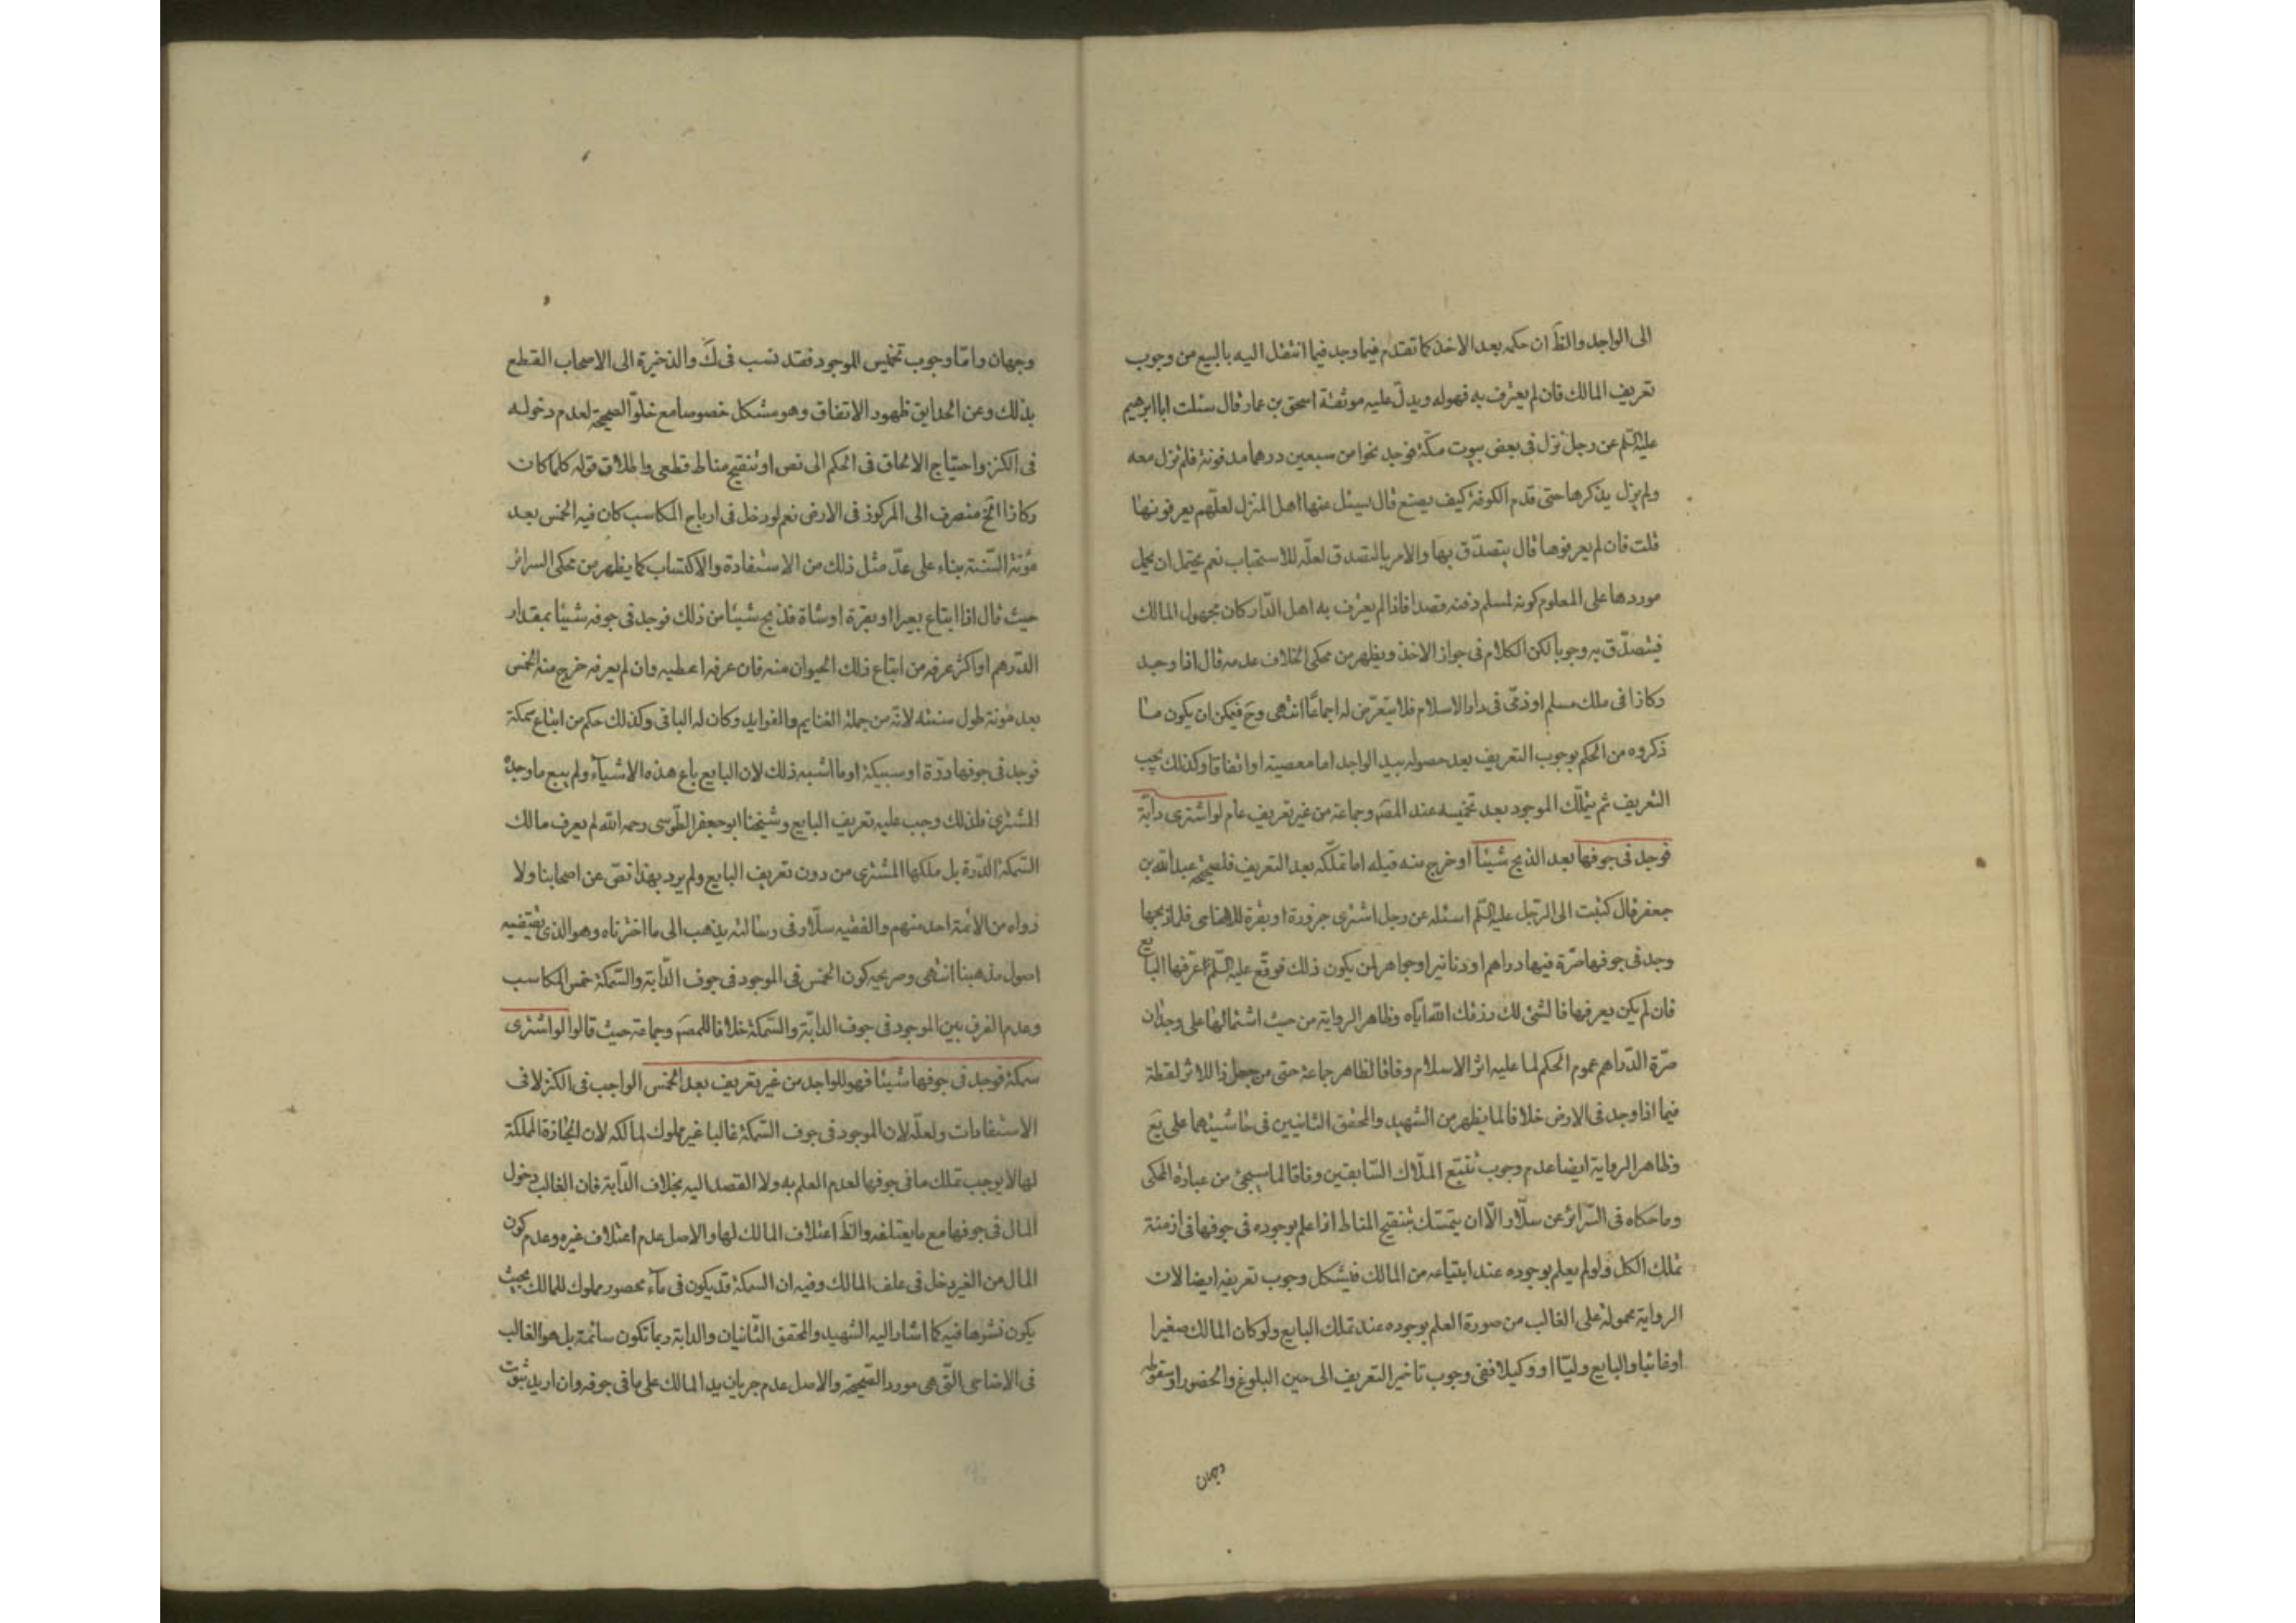 الى الواجد والظَ ان حكمه بعد الاخذ كما تقدم فيما وجد فيما انتقل اليه بالبيع من وجوب
تعريف المالك فان لم يعترف به فهو له ويدلّ عليه موثقة اسحق بن عمار قال سئلت ابا ابرهيم
عليه السّلم عن رجل نزل فى بعض بيوت مكّة فوجد نحوا من سبعين درهما مدفونة فلم تزل معه
ولم يزل يذكرها حتى قدم الكوفة كيف يصنع قال يسئل عنها اهل المنزل لعلّهم يعرفونها
قلت فان لم يعرفوها قال يتصدّق بها والامر بالتصدق لعلّه للاستحباب نعم يحتمل ان يحمل
موردها على المعلوم كونه لمسلم دفنه قصدا فاذا لم يعترف به اهل الدّار كان مجهول المالك
فيتصدّق به وجوبا لكن الكلام فى جواز الاخذ ويظهر من محكى الخلاف عدمه قال اذا وجد
ركازا فى ملك مسلم او ذمّى فى دار الاسلام فلا يتعرّض له اجماعًا انتهى وحَ فيمكن ان يكون ما
ذكروه من الحكم بوجوب التعريف بعد حصوله بيد الواجد اما معصية او اتفاقا وكذلك يجب
التعريف ثم يتملّك الموجود بعد تخميسه عند المصَ وجماعة من غير تعريف عام لو اشترى دابّة
فوجد فى جوفها بعد الذبح شيئا او خرج منه قبله اما تملّكه بعد التعريف فلصحيحة عبد الله بن
جعفر قال كتبت الى الرّجل عليه السّلم اسئله عن رجل اشترى جزورة او بقرة للاضاحى فلما ذبحها
وجد فى جوفها صرّة فيها دراهم او دنانير او جواهر لمن يكون ذلك فوقّع عليه السّلم عرّفها البايع
فان لم يكن يعرفها فالشئ لك رزقك الله ايّاه وظاهر الرواية من حيث اشتمالها على وجدان
صرّة الدّراهم عموم الحكم لما عليه اثر الاسلام وفاقا لظاهر جماعة حتى من جعل ذا الاثر لقطة
فيما اذا وجد فى الارض خلافا لما يظهر من الشهيد والمحقق الثانيين فى حاشيتهما على يَع
وظاهر الرواية ايضا عدم وجوب تتبّع الملّاك السّابقين وفاقا لما سيجئ من عبارة المحكى
وما حكاه فى السّرائر عن سلّار الّا ان يتمسّك بتنقيح المناط اذا علم بوجوده فى جوفها فى ازمنة
تملك الكل ولو لم يعلم بوجوده عند ابتياعه من المالك فيشكل وجوب تعريفه ايضا لان
الرواية محمولة على الغالب من صورة العلم بوجوده عند تملك البايع ولو كان المالك صغيرا
او غائبا والبايع وليّا او وكيلا ففى وجوب تاخير التعريف الى حين البلوغ والحضور او سقوطه
وجهان
وجهان وامّا وجوب تخميس الموجود فقد نسب فى كَ والذخيرة الى الاصحاب القطع
بذلك وعن الحدايق ظهور الاتفاق وهو مشكل خصوصا مع خلوّ الصحيحة لعدم دخوله
فى الكنز واحتياج الالحاق فى الحكم الى نص او تنقيح مناط قطعى واطلاق قوله كلما كان
ركازا الخ منصرف الى المركوز فى الارض نعم لو دخل فى ارباح المكاسب كان فيه الخمس بعد
مؤنة السّنة بناء على عدّ مثل ذلك من الاستفادة والاكتساب كما يظهر من محكى السرائر
حيث قال اذا ابتاع بعيرا او بقرة او شاة فذبح شيئا من ذلك فوجد فى جوفه شيئا بمقدار
الدّرهم او اكثر عرفه من ابتاع ذلك الحيوان منه فان عرفه اعطيه وان لم يعرفه خرج منه الخمس
بعد مؤنة طول سنته لانه من جملة الغنايم والفوايد وكان له الباقى وكذلك حكم من ابتاع سمكة
فوجد فى جوفها درّة او سبيكة او ما اشبه ذلك لان البايع باع هذه الاشياء ولم يبع ما وجده
المشترى فلذلك وجب عليه تعريف البايع وشيخنا ابو جعفر الطّوسى رحمه الله لم يعرف مالك
السّمكة الدّرة بل ملكها المشترى من دون تعريف البايع ولم يرد بهذا نصّ عن اصحابنا ولا
رواه من الائمة احد منهم والفقيه سلّار فى رسالته يذهب الى ما اخترناه وهو الذى يقتضيه
اصول مذهبنا انتهى وصريحه كون الخمس فى الموجود فى جوف الدّابة والسّمكة خمس المكاسب
وعدم الفرق بين الموجود فى جوف الدابّة والسّمكة خلافا للمصَ وجماعة حيث قالوا لو اشترى
سمكة فوجد فى جوفها شيئا فهو للواجد من غير تعريف بعد الخمس الواجب فى الكنز لا فى
الاستفادات ولعلّه لان الموجود فى جوف السّمكة غالبا غير مملوك لمالكه لان الحيازة المملكة
لها لا يوجب تملك ما فى جوفها لعدم العلم به ولا القصد اليه بخلاف الدّابة فان الغالب دخول
المال فى جوفها مع ما يعتلفه والظَ اعتلاف المالك لها والاصل عدم اعتلاف غيره وعدم كون
المال من الغير دخل فى علف المالك وفيه ان السمكة قد يكون فى ماء محصور مملوك للمالك بحيث
يكون نشوها فيه كما اشار اليه الشهيد والمحقق الثّانيان والدابة ربما تكون سائمة بل هو الغالب
فى الاضاحى الّتى هى مورد الصّحيحة والاصل عدم جريان يد المالك على ما فى جوفه وان اريد ثبوت